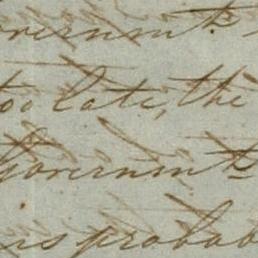 overnmt
too late, the
Governmt
is probab